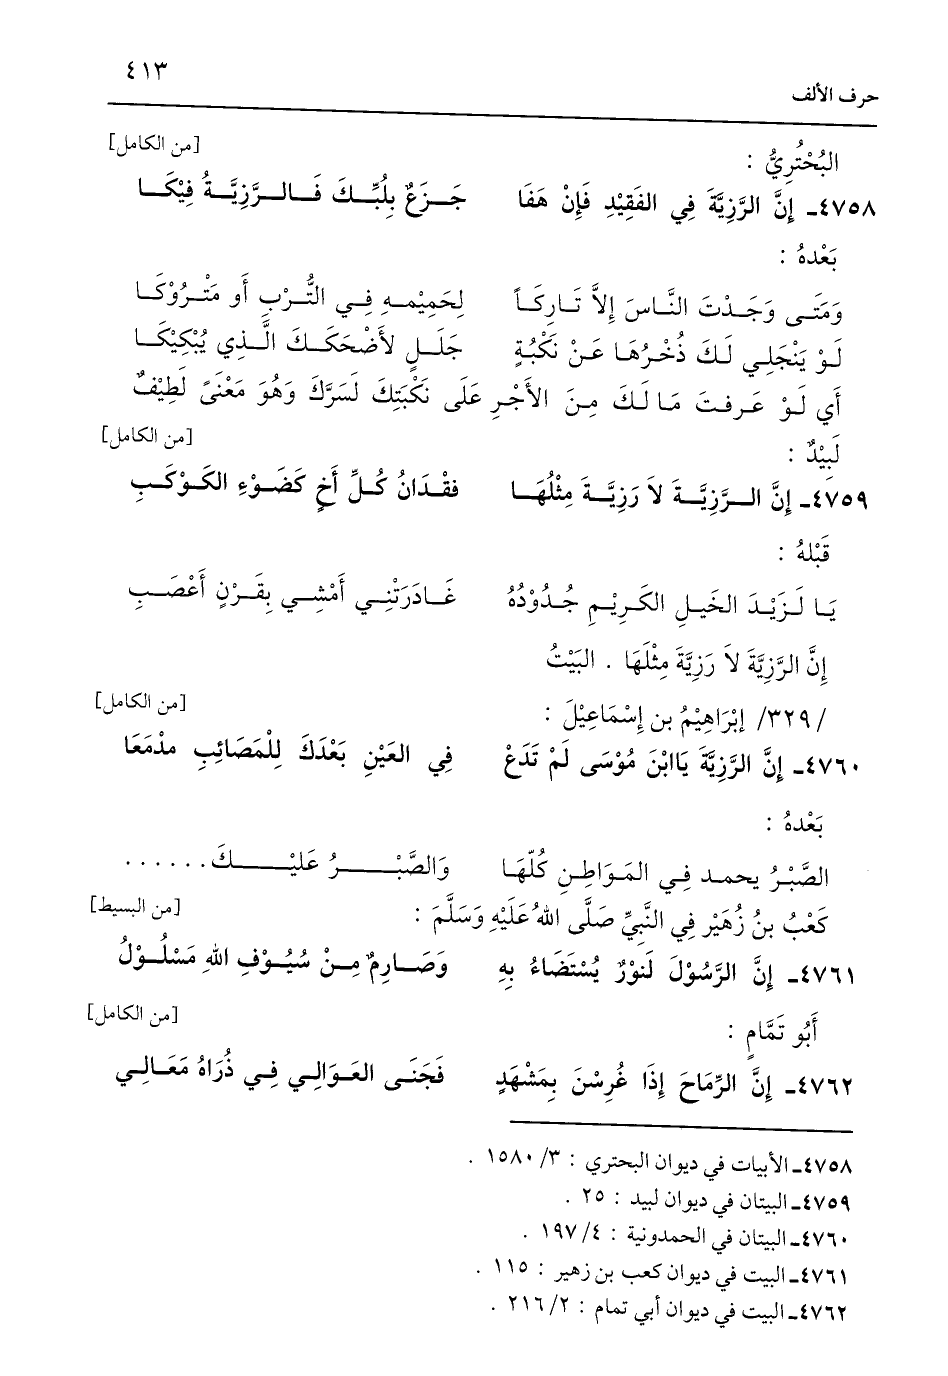 حرف الألف ٤١٣
البُحْتُرِيُّ : [من الكامل]
٤٧٥٨ـ إِنَّ الرَّزِيَّةَ فِي الفَقِيْدِ فَإِنْ هَفَا جَزَعٌ بِلُبِّكَ فَالرَّزِيَّةُ فِيْكَا
بَعْدهُ :
وَمَتَى وَجَدْتَ النَّاسَ إِلاَّ تَارِكَاً لِحَمِيْمِهِ فِي التُّرْبِ أَو مَتْرُوْكَا
لَوْ يَنْجَلِي لَكَ ذُخْرُهَا عَنْ نَكْبَةٍ جَلَلٍ لأَضْحَكَكَ الَّذِي يُبْكِيْكَا
أَي لَوْ عَرفتَ مَا لَكَ مِنَ الأَجْرِ عَلَى نَكْبَتِكَ لَسَرَّكَ وَهُوَ مَعْنَىً لَطِيْفٌ
لَبِيْدٌ : [من الكامل]
٤٧٥٩ـ إِنَّ الرَّزِيَّةَ لاَ رَزِيَّةَ مِثْلُهَا فقْدَانُ كُلِّ أَخٍ كَضَوْءِ الكَوْكَبِ
قَبْلهُ :
يَا لَزَيْدَ الخَيلِ الكَرِيْمِ جُدُوْدُهُ غَادَرَتْنِي أَمْشِي بِقَرْنٍ أَعْضَبِ
إِنَّ الرَّزِيَّةَ لاَ رَزِيَّةَ مِثْلَهَا . البَيْتُ
/٣٢٩/ إبْرَاهِيْمُ بن إِسْمَاعِيْلَ : [من الكامل]
٤٧٦٠ـ إِنَّ الرَّزِيَّةَ يَاابْنَ مُوْسَى لَمْ تَدَعْ فِي العَيْنِ بَعْدَكَ لِلْمَصَائِبِ مدْمَعَا
بَعْدهُ :
الصَّبْرُ يحمد فِي المَوَاطِنِ كُلّهَا وَالصَّبْرُ عَلَيْكَ......
كَعْبُ بنُ زُهَيْر فِي النَّبِيِّ صَلَّى اللهُ عَلَيْهِ وَسَلَّمَ : [من البسيط]
٤٧٦١ـ إِنَّ الرَّسُوْلَ لَنوْرٌ يُسْتَضَاءُ بِهِ وَصَارِمٌ مِنْ سُيُوْفِ اللهِ مَسْلُوْلُ
أَبُو تَمَّامٍ : [من الكامل]
٤٧٦٢ـ إِنَّ الرِّمَاحَ إِذَا غُرِسْنَ بِمَشْهَدٍ فَجَنَى العَوَالِي فِي ذُرَاهُ مَعَالِي
٤٧٥٨ـ الأبيات في ديوان البحتري : ٣/ ١٥٨٠ .
٤٧٥٩ـ البيتان في ديوان لبيد : ٢٥ .
٤٧٦٠ـ البيتان في الحمدونية : ٤/ ١٩٧ .
٤٧٦١ـ البيت في ديوان كعب بن زهير : ١١٥ .
٤٧٦٢ـ البيت في ديوان أبي تمام : ٢/ ٢١٦ .